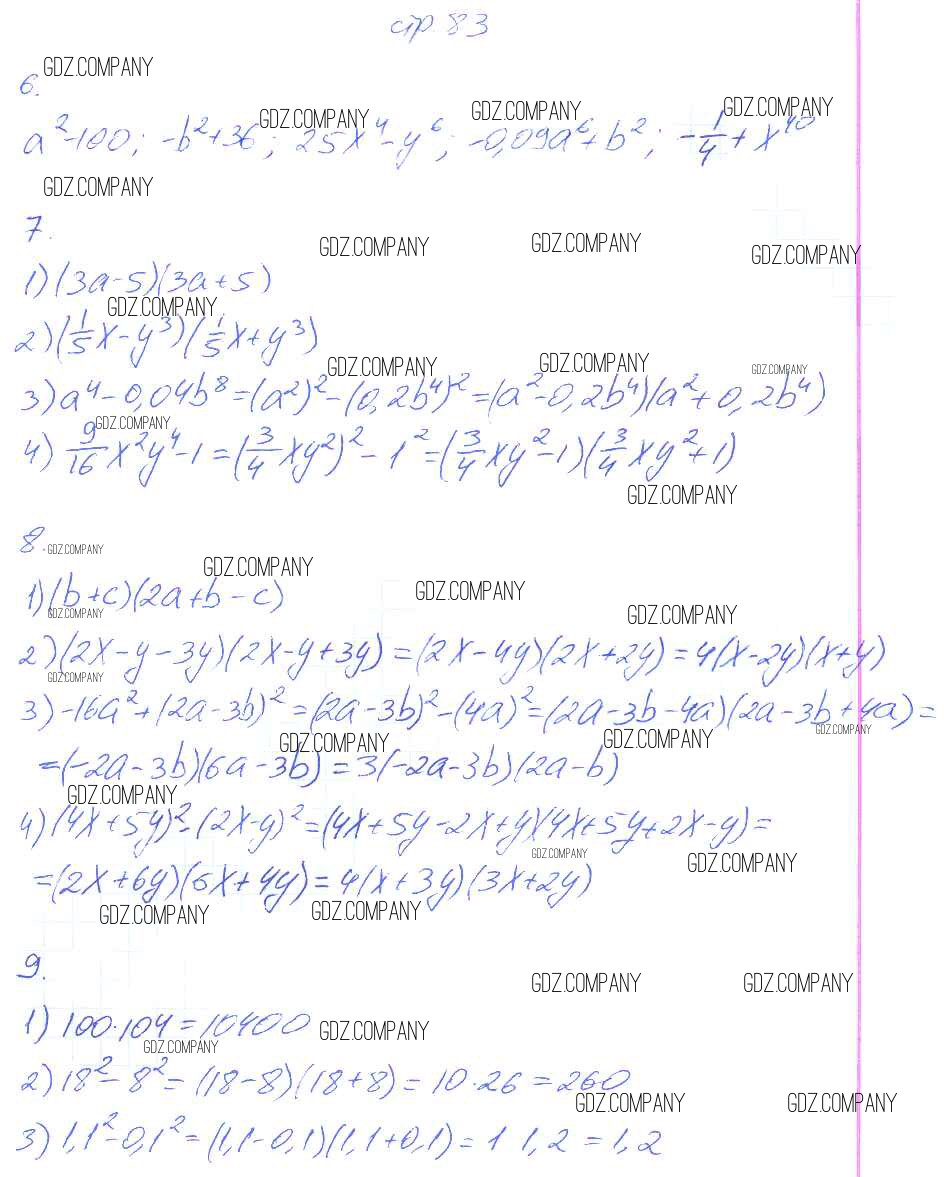 стр. 83
GDZ.COMPANY
6.
GDZ.COMPANY GDZ.COMPANY GDZ.COMPANY
a²-100; -b²+36; 25x⁴-y⁶; -0,09a⁶+b²; -1/4+x⁴⁰
GDZ.COMPANY
7.
GDZ.COMPANY GDZ.COMPANY GDZ.COMPANY
1) (3a-5)(3a+5)
GDZ.COMPANY
2) (1/5x-y³)(1/5x+y³)
GDZ.COMPANY GDZ.COMPANY GDZ.COMPANY
3) a⁴-0,04b⁸=(a²)²-(0,2b⁴)²=(a²-0,2b⁴)(a²+0,2b⁴)
GDZ.COMPANY
4) 9/16x²y⁴-1=(3/4xy²)²-1²=(3/4xy²-1)(3/4xy²+1)
GDZ.COMPANY
8.
GDZ.COMPANY
GDZ.COMPANY GDZ.COMPANY
1) (b+c)(2a+b-c)
GDZ.COMPANY GDZ.COMPANY
2) (2x-y-3y)(2x-y+3y)=(2x-4y)(2x+2y)=4(x-2y)(x+y)
GDZ.COMPANY
3) -16a²+(2a-3b)²=(2a-3b)²-(4a)²=(2a-3b-4a)(2a-3b+4a)=
GDZ.COMPANY GDZ.COMPANY GDZ.COMPANY
=(-2a-3b)(6a-3b)=3(-2a-3b)(2a-b)
GDZ.COMPANY
4) (4x+5y)²-(2x-y)²=(4x+5y-2x+y)(4x+5y+2x-y)=
GDZ.COMPANY GDZ.COMPANY
=(2x+6y)(6x+4y)=4(x+3y)(3x+2y)
GDZ.COMPANY GDZ.COMPANY
9.
GDZ.COMPANY GDZ.COMPANY
1) 100·104=10400
GDZ.COMPANY
GDZ.COMPANY
2) 18²-8²=(18-8)(18+8)=10·26=260
GDZ.COMPANY GDZ.COMPANY
3) 1,1²-0,1²=(1,1-0,1)(1,1+0,1)=1 1,2=1,2